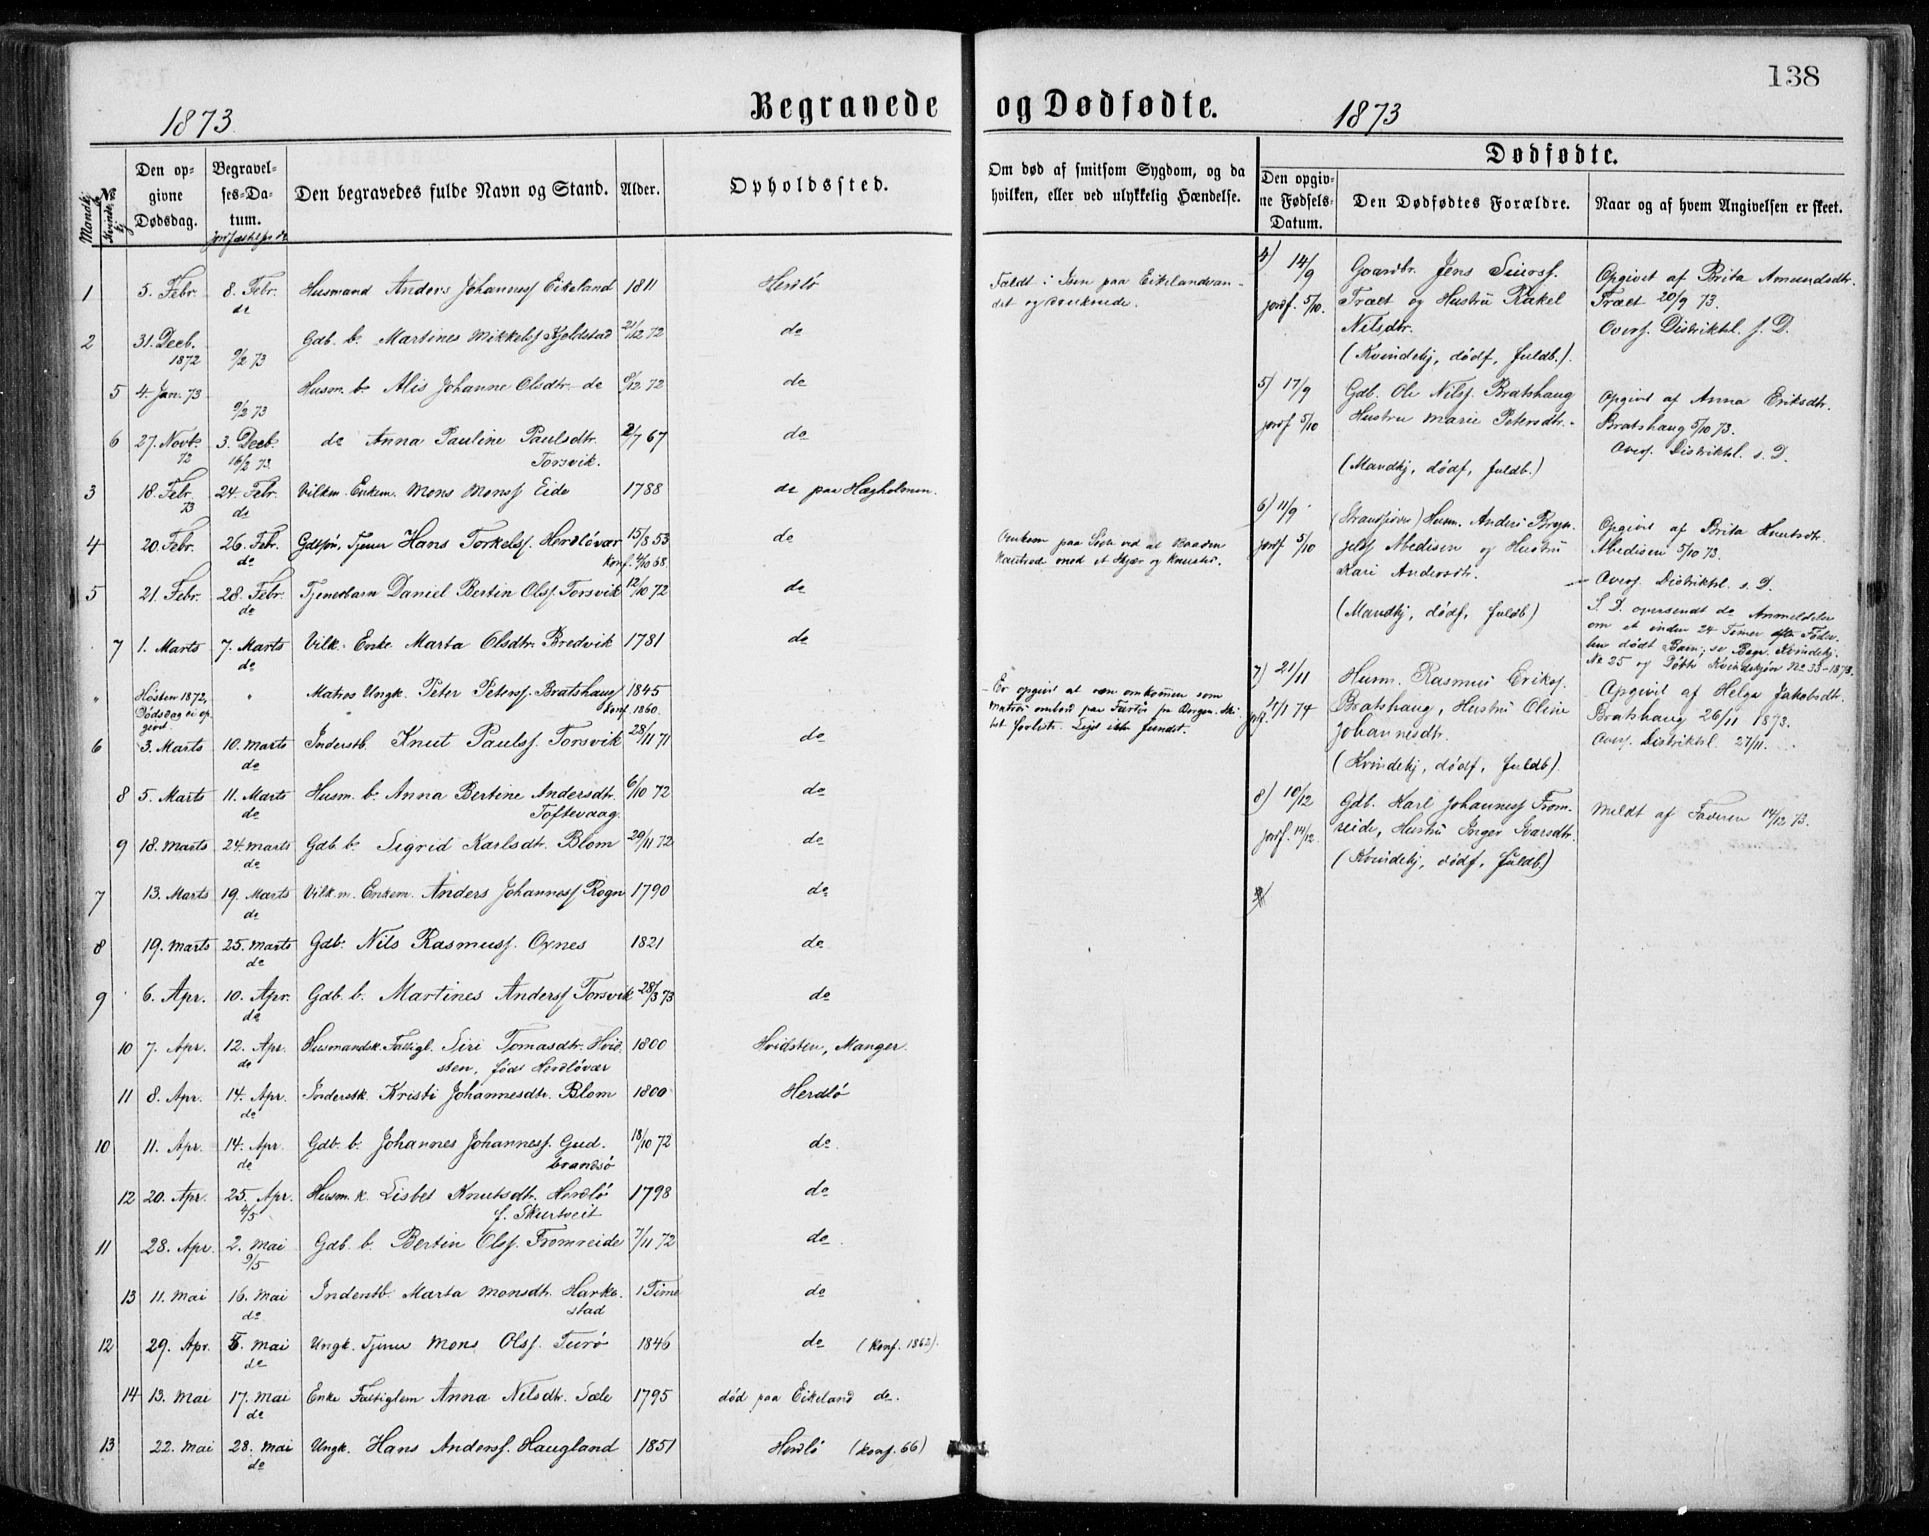 138
Begravede og Dødfødte.
1873.
1873
Mandkj.
No.
Kvindekj.
Den opgivne Dødsdag.
Begravelses-Datum.
Jordfæstelses do
Den begravedes fulde Navn og Stand.
Alder.
Opholdssted.
Om død af smitsom Sygdom, og da hvilken, eller ved ulykkelig Hændelse.
Dødfødte.
Den opgivne Fødsels-Datum.
Den Dødfødtes Forældre.
Naar og af hvem Angivelsen er skeet.
1 5. Febr. 8. Febr. Husmand Anders Johannesf Eikeland 1811 Herdlø
do
Faldt i Isen paa Eikelandvan-
det og druknede.
2 31. Decb. Gdb. b. Martines Mikkelsf Kjelstad 21/12 72 do
1872 9/2 73
5 4. Jan. 73 Husm. b. Alis Johanne Olsdtr. do 9/12 72 do
9/2 73
6 27. Novb. 3. Decb. do Anna Pauline Paulsdtr. 2/7 67 do
72 16/2 73 Torsvik.
3 18. Febr. 24. Febr. Vilkm. Enkem. Mons Monsf Eide 1788 do paa Hægholmen.
73 do
4 20. Febr. 26. Febr. Gdbsøn, Tjener Hans Torkelsf. Herdløvær 15/8 53 do
do Konf. 4/10 68.
Omkom paa Søen ved at Baaden
kantrede mod et Skjær og knustes.
5 21. Febr. 28. Febr. Tjenerbarn Daniel Bertin Olsf. Torsvik 12/10 72 do
do
7 1. Marts 7. Marts Vilk. Enke Marta Olsdtr. Bredvik 1781 do
do
" Høsten 1872, " Matros Ungk. Peter Petersf. Bratshaug 1845
Dødsdag ei op- Konf. 1860.
givet.
Er opgivet at være omkommen som
Matros ombord paa Fartøi fra Bergen. Ski-
bet forlist. Liget ikke fundet.
6 3. Marts 10. Marts Inderstb. Knut Paulsf. Torsvik 28/11 71 do
do
8 5. Marts 11. Marts Husm. b. Anna Bertine Andersdtr. 6/10 72 do
do Toftevaag.
9 18. Marts 24. Marts Gdb. b. Sigrid Karlsdtr. Blom 29/11 72 do
do
7 13. Marts 19. Marts Vilk.m. Enkem. Anders Johannesf Rogn 1790 do
do
8 19. Marts 25. Marts Gdb. Nils Rasmusf. Oxnes 1821 do
do
9 6. Apr. 10. Apr. Gdb. b. Martines Andersf Torsvik 28/3 73 do
do
10 7. Apr. 12. Apr. Husmandsk. Fattigl. Siri Tomasdtr. Hvid- 1800 Hvidsten, Manger.
do sten, født Herdløvær
11 8. Apr. 14. Apr. Inderstk. Kristi Johannesdtr. Blom 1800 Herdlø
do
10 11. Apr. 14. Apr. Gdb. b. Johannes Johannesf. Gud- 18/10 72 do
do brandsø
12 20. Apr. 25. Apr. Husm. k. Lisbet Knutsdtr. Herdlø 1798 do
4/5 f. Skurtveit
11 28. Apr. 2. Mai Gdb. b. Bertin Olsf. Fromreide 7/11 72 do
9/5
13 11. Mai 16. Mai Inderstb. Marta Monsdtr. Harke- 1 Time do
do stad
12 29. Apr. 5. Mai Ungk. Tjener Mons Olsf. Turø 1846 do (Konf. 1862).
do
14 13. Mai 17. Mai Enke Fattiglem Anna Nilsdtr. Sæle 1795 død paa Eikeland do.
do
13 22. Mai 28. Mai Ungk. Hans Andersf. Haugland 1851 Herdlø (Konf. 66)
do
4) 14/9 Gaardbr. Jens Siursf. Opgivet af Brita Amundsdtr.
jordf. 5/10. Træet og Hustru Rakel Træet 20/9 73.
Nilsdtr. Overs. Distriktsl. s. D.
(Kvindekj, dødf, fuldb.).
5) 17/9 Gdb. Ole Nilsf. Bratshaug Opgivet af Anna Eriksdtr.
jordf 5/10 Hustru Marie Petersdtr. Bratshaug 5/10 73.
Overs. Distriktsl. s. D.
(Mandkj, dødf, fuldb.)
6) 11/9 (Strandsidder) Husm. Anders Bryn- Opgivet af Brita Knutsdtr.
jordf 5/10 jelsf Medisen og Hustru Medisen 5/10 73.
Kari Andersdtr. Overs. Distriktsl. s. D.
(Mandkj, dødf, fuldb) S. D. oversendt do Anmeldelse
om et inden 24 Timer efter Føds-
len dødt Barn; se Begr. Kvindekj.
No 25 og Døbte Kvindekjøn No 35-1873.
7) 21/11 Husm. Rasmus Eriksf. Opgivet af Helga Jakobsdtr.
jordf. 4/1 74 Bratshaug, Hustru Olive Bratshaug 26/11 1873.
Johannesdtr. Overs. Distriktsl. 27/11.
(Kvindekj, dødf, fuldb).
8) 10/12 Gdb. Karl Johannesf From- Meldt af Faderen 14/12 73.
jordf. 14/12. reide, Hustru Inger Ivarsdtr.
(Kvindekj, dødf, fuldb)